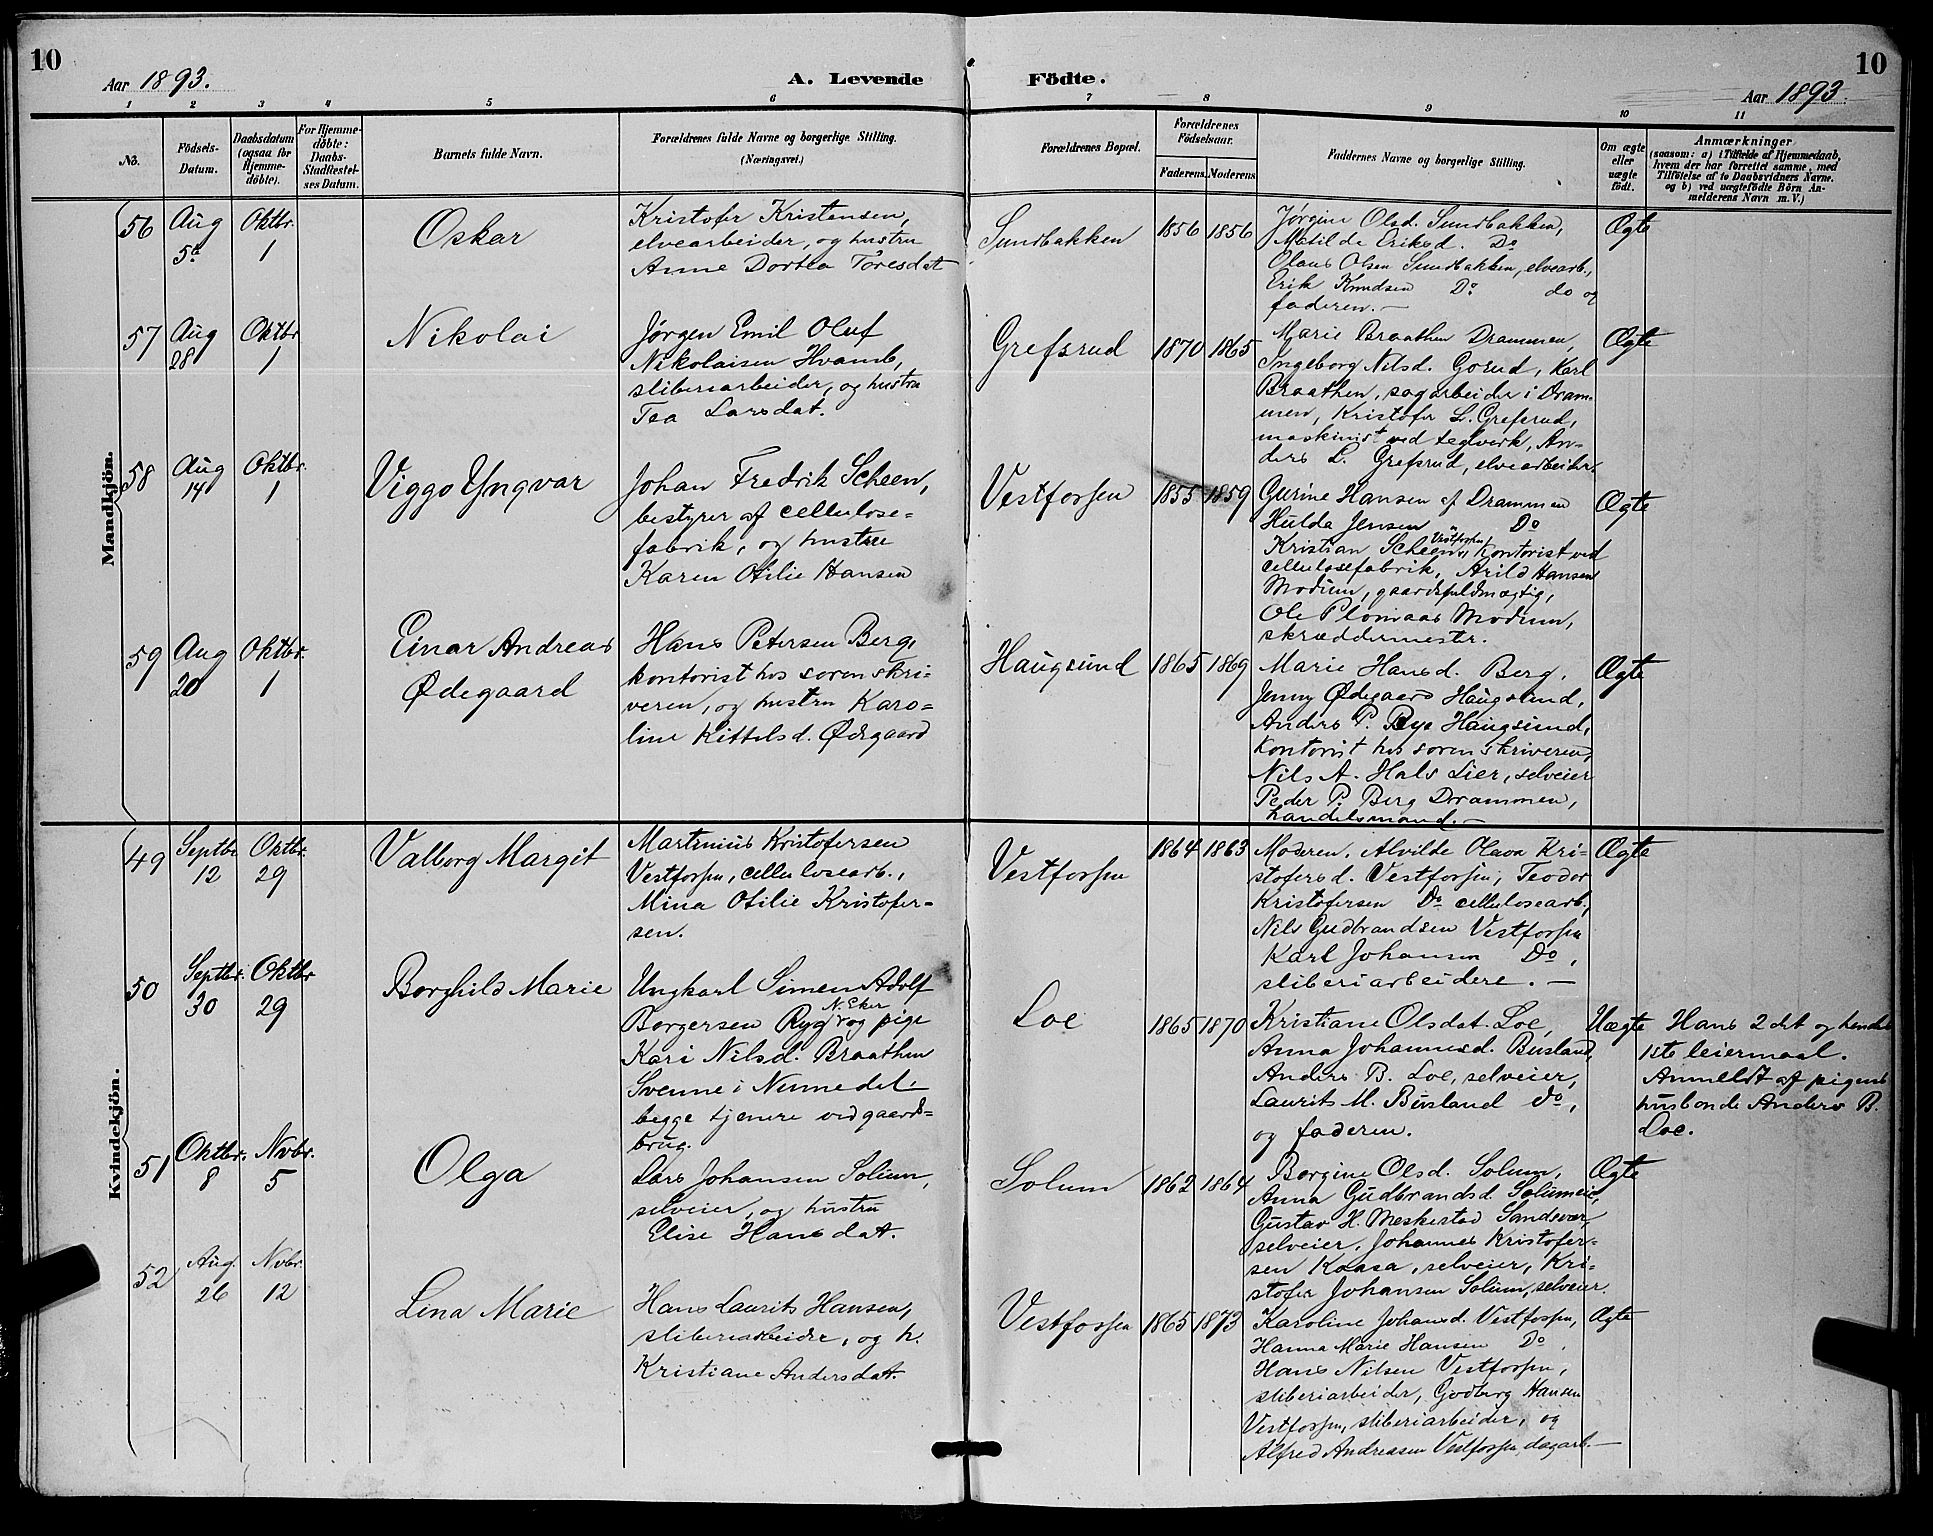 10
Aar 1893.
A. Levende
Födte.
Aar 1893.
10
1 2 3 4 5 6 7 8 9 10 11
No.
Födsels-
Datum.
Daabsdatum
(ogsaa for
Hjemme-
döbte).
For Hjemme-
döbte:
Daabs-
Stadfæstel-
ses Datum.
Barnets fulde Navn.
Forældrenes fulde Navne og borgerlige Stilling.
(Næringsvei.)
Forældrenes Bopæl.
Forældrenes
Födselsaar.
Faderens. Moderens.
Faddernes Navne og borgerlige Stilling.
Om ægte
eller
uægte
födt.
Anmærkninger
(saasom: a) i Tilfælde af Hjemmedaab,
hvem der har forrettet samme, med
Tilföielse af to Daabsvidners Navne.
og b) ved uægtefödte Börn An-
melderens Navn m. V.)
Mandkjön.
56
Aug
5te
Oktbr.
1
Oskar
Kristofer Kristensen,
elvearbeider, og hustru
Anne Dortea Toresdat
Sundbakken
1856 1856
Jørgine Olsd. Sundbakken,
Matilde Eriksd. Do
Olaus Olsen Sundbakken, elvearb.,
Erik Knudsen Do do og
faderen. —
Ægte
57
Aug
28
Oktbr
1
Nikolai
Jørgen Emil Oluf
Nikolaisen Hvamb,
sliberiarbeider, og hustru
Tea Larsdat.
Grefsrud
1870 1865
Marie Braathen Drammen,
Ingeborg Nilsd. Gorud, Karl
Braathen, sagarbeider i Dram-
men, Kristofer L. Grefsrud,
maskinist ved teglverk, An-
ders L. Grefsrud, elvearbeider.
Ægte
58
Aug
14
Oktbr.
1
Viggo Yngvar
Johan Fredrik Scheen,
bestyrer af cellulose-
fabrik, og hustru
Karen Otilie Hansen
Vestfossen
1855 1859
Gurine Hansen af Drammen
Hulda Jensen Do
Kristian Scheen, Vestfossen, Kontorist ved
cellulosefabrik, Arild Hansen
Modum, gaardsfuldmægtig,
Ole Plomaas Modum,
skræddermester.
Ægte
59
Aug
20
Oktbr.
1
Einar Andreas
Ødegaard
Hans Petersen Berg,
kontorist hos sorenskri-
veren, og hustru Karo-
line Kittelsd. Ødegaard
Haugsund
1865 1869
Marie Hansd. Berg,
Jenny Ødegaard Haugsund,
Anders P. Rye Haugsund,
Kontorist hos sorenskriveren,
Nils A. Hals Lier, selveier
Peder P. Berg Drammen,
handelsmand. —
Ægte
Kvindekjön.
49
Septbr
12
Oktbr.
29
Valborg Margit
Martinius Kristofersen
Vestfossen, cellulosearb.,
Mina Otilie Kristofer-
sen.
Vestfossen
1864 1863
Moderen. Alvilde Olava Kri-
stofersd. Vestfossen, Teodor
Kristofersen Do cellulosearb.,
Nils Gudbrandsen Vestfossen
Karl Johansen Do,
sliberiarbeidere. —
Ægte
50
Septbr.
30
Oktbr
29
Borghild Marie
Ungkarl Simen Adolf
Borgersen Ryg N. Eker og pige
Kari Nilsd. Braathen
Svenne i Numedal
begge tjenere ved gaards-
brug.
Loe
1865 1870
Kristiane Olsdat. Loe,
Anna Johannesd. Busland,
Anders B. Loe, selveier,
Laurits M. Busland do,
og faderen.
Uægte
Hans 2det og hendes
1ste leiermaal.
Anmeldt af pigens
husbonde Anders B.
Loe.
51
Oktbr.
8
Nvbr.
5
Olga
Lars Johansen Solum,
selveier, og hustru
Elise Hansdat.
Solum
1862 1864
Borgine Olsd. Solum,
Anna Gudbrandsd. Solumeie,
Gustav H. Meskestad Sandsvær,
selveier, Johannes Kristofer-
sen Kaasa, selveier, Kri-
stofer Johansen Solum, selveier.
Ægte
52
Aug.
26
Nvbr.
12
Lina Marie
Hans Laurits Hansen,
sliberiarbeider, og h.
Kristiane Andersdat.
Vestfossen
1865 1873
Karoline Johansd. Vestfossen,
Hanna Marie Hansen Do,
Hans Nilsen Vestfossen,
sliberiarbeider, Godberg Hansen
Vestfossen, sliberiarbeider, og
Alfred Andreasen Vestfossen, dagarb. —
Ægte